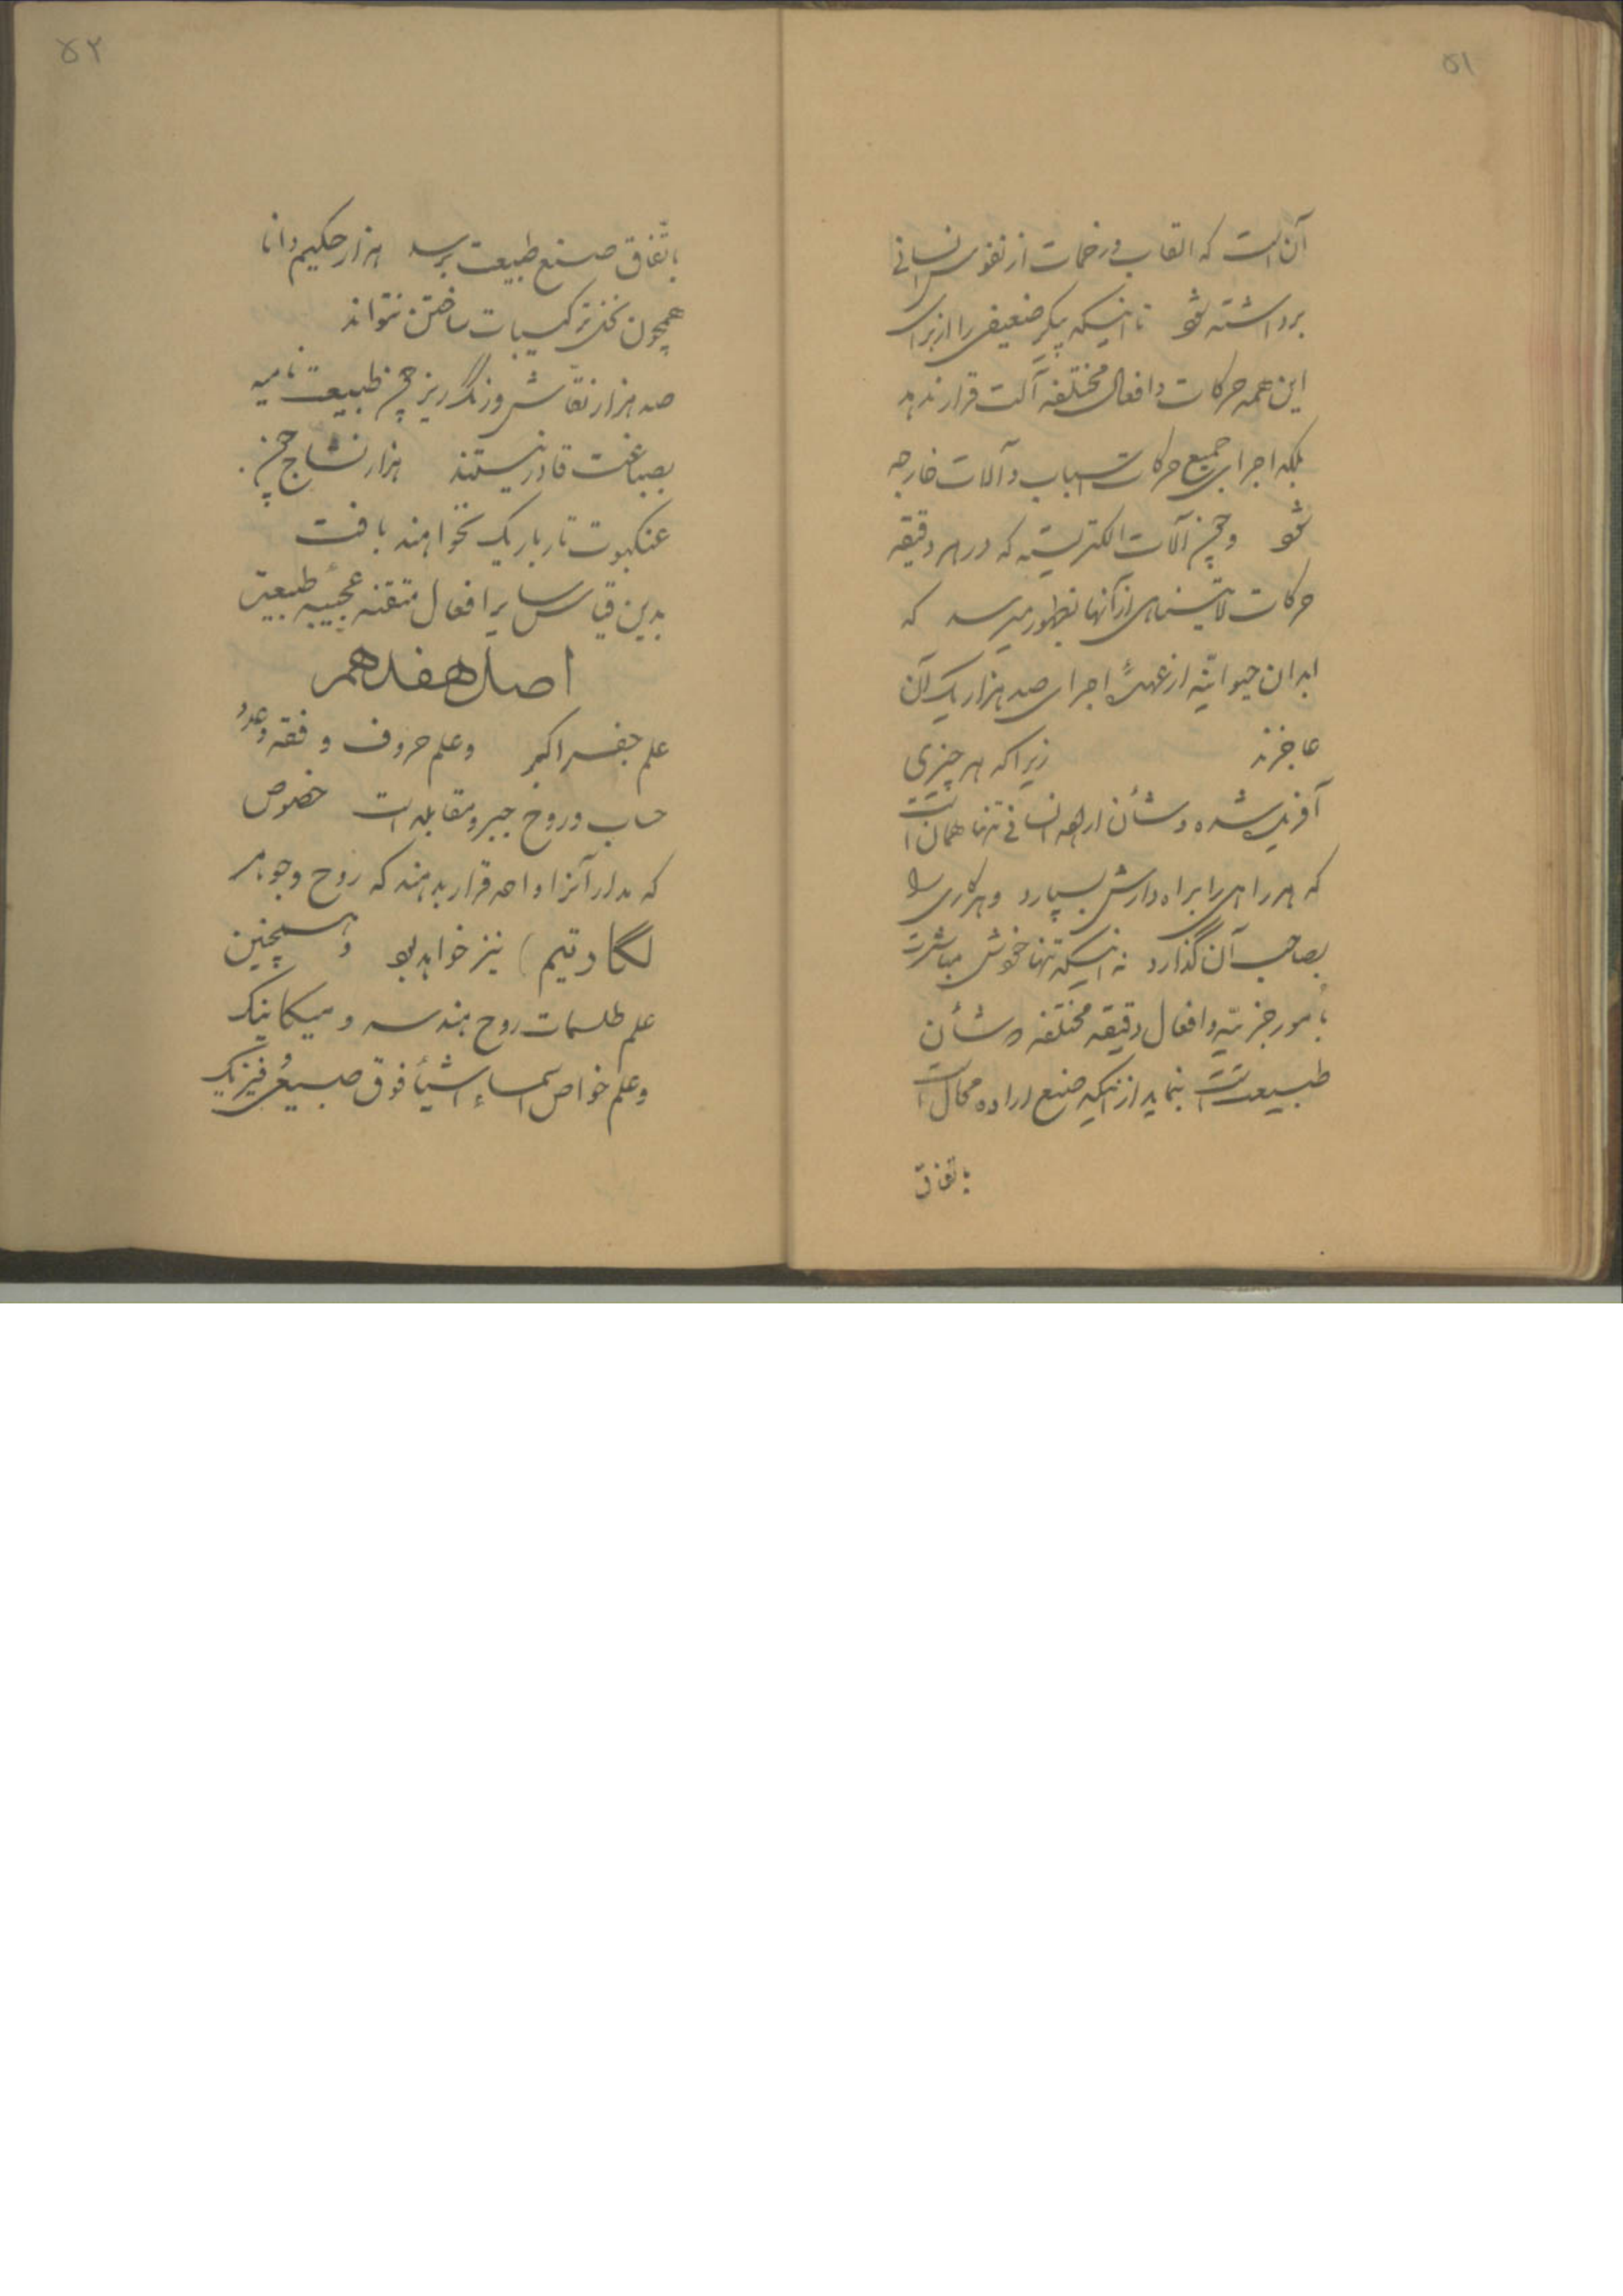 ۵۱
آن است که القاب و زحمات از نفوس انسانی
برداشته شود تا اینکه پیکر ضعیفی را از برای
این همه حرکات و افعال مختلفه آلت قرار ندهد
بلکه اجرای جمیع حرکات اسباب و آلات خارجه
شود و چون آلات الکتریسته که در هر دقیقه
حرکات لایتناهی از آنها بظهور میرسد که
ابدان حیوانیّه از عهدهٔ اجرای صد هزار یک آن
عاجزند زیرا که هر چیزی
آفریده شده و شأن اراده انسانی تنها همان است
که هر راهی را براه دارش بسپارد و هر کاری را
بصاحب آن گذارد نه اینکه تنها خودش مباشرت
بامور جزئیّه و افعال دقیقه مختلفه و شأن
طبیعت است بنماید از اینکه صنع اراده محال است
باتفاق
۵۲
باتّفاق صنع طبیعت برسد هزار حکیم دانا
همچون نحل ترکیبات ساختن نتواند
صد هزار نقّاش و رنگ ریز چون طبیعت نامیه
بصباغت قادر نیستند هزار نساج چون
عنکبوت تار باریک نخواهند بافت
بدین قیاس سایر افعال متقنه عجیبه طبیعت
اصل هفدهم
علم جفر اکبر و علم حروف و فقه و عدد
حساب و روح جبر و مقابله است خصوص
که مدار آنرا واحد قرار بدهند که روح و جوهر
لگاریتم) نیز خواهد بود و همچنین
علم طلسمات روح هندسه و میکانیک
و علم خواص اسماء اشیأ فوق طبیعی فیزیک